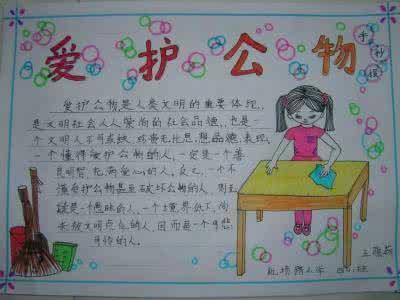 爱护公物
手抄报
爱护公物是人类文明的重要体现,
是文明社会人人崇尚的社会品德,也是一
个文明人不可或缺,珍贵无比思想品德,表现,
一个懂得爱护公物的人,一定是一个善
良明智、充满爱心的人,反之,一个不
懂爱护公物甚至破坏公物的人,则无
疑是一个愚昧的人,一个境界低下,尚
未被文明点化的人,因而是一个可悲
可怜的人。
机场路小学